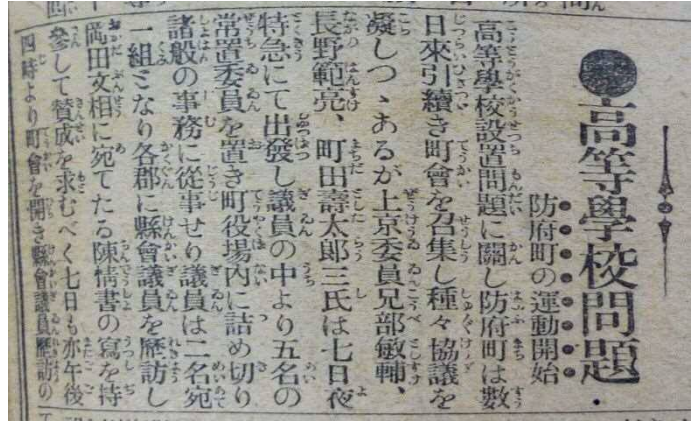 ●高等學校問題.
防府町の運動開始
高等學校設置問題に關し防府町は數
日來引續き町會を召集し種々協議を
凝しつゝあるが上京委員兄部敏輔、
長野範亮、町田壽太郎三氏は七日夜
特急にて出發し議員の中より五名の
常置委員を置き町役場內に詰め切り
諸般の事務に從事せり議員は二名宛
一組となり各郡に縣會議員を歷訪し
岡田文相に宛てたる陳情書の寫を持
參して贊成を求むべく七日も亦午後
四時より町會を開き縣會議員歷訪の